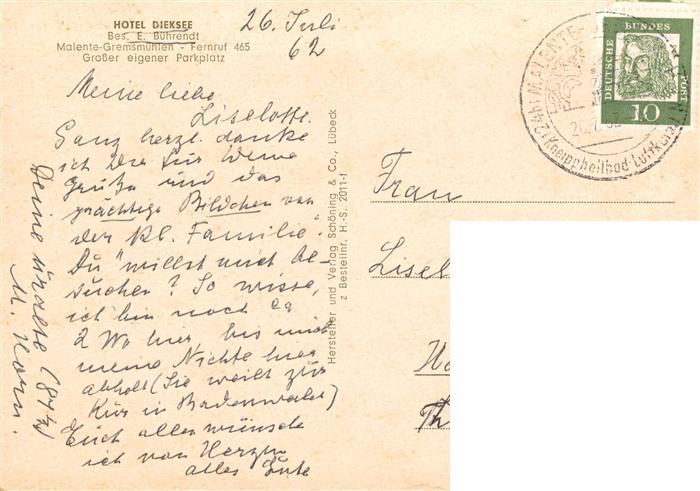 HOTEL DIEKSEE
Bes. E. Bührendt
Malente-Gremsmühlen - Fernruf 465
Großer eigener Parkplatz
26. Juli
62
Meine liebe
Liselotte.
Ganz herzl. danke
ich Dir für Deine
Grüße und das
prächtige Bildchen von
der kl. Familie.
Du willst mich be-
suchen? So wisse,
ich bin noch ca
2 Wo hier, bis mich
meine Nichte hier
abholt (Sie weilt zur
Kur in Badenweiler)
Euch allen wünsche
ich von Herzen
alles Gute
Deine uralte (84 j)
M. Horn.
Hersteller und Verlag Schöning & Co., Lübeck
z Bestellnr. H.-S. 2011-f
(24b) MALENTE
Kneippheilbad-Luftkurort
DEUTSCHE BUNDESPOST
10
Frau
Lisel
Th